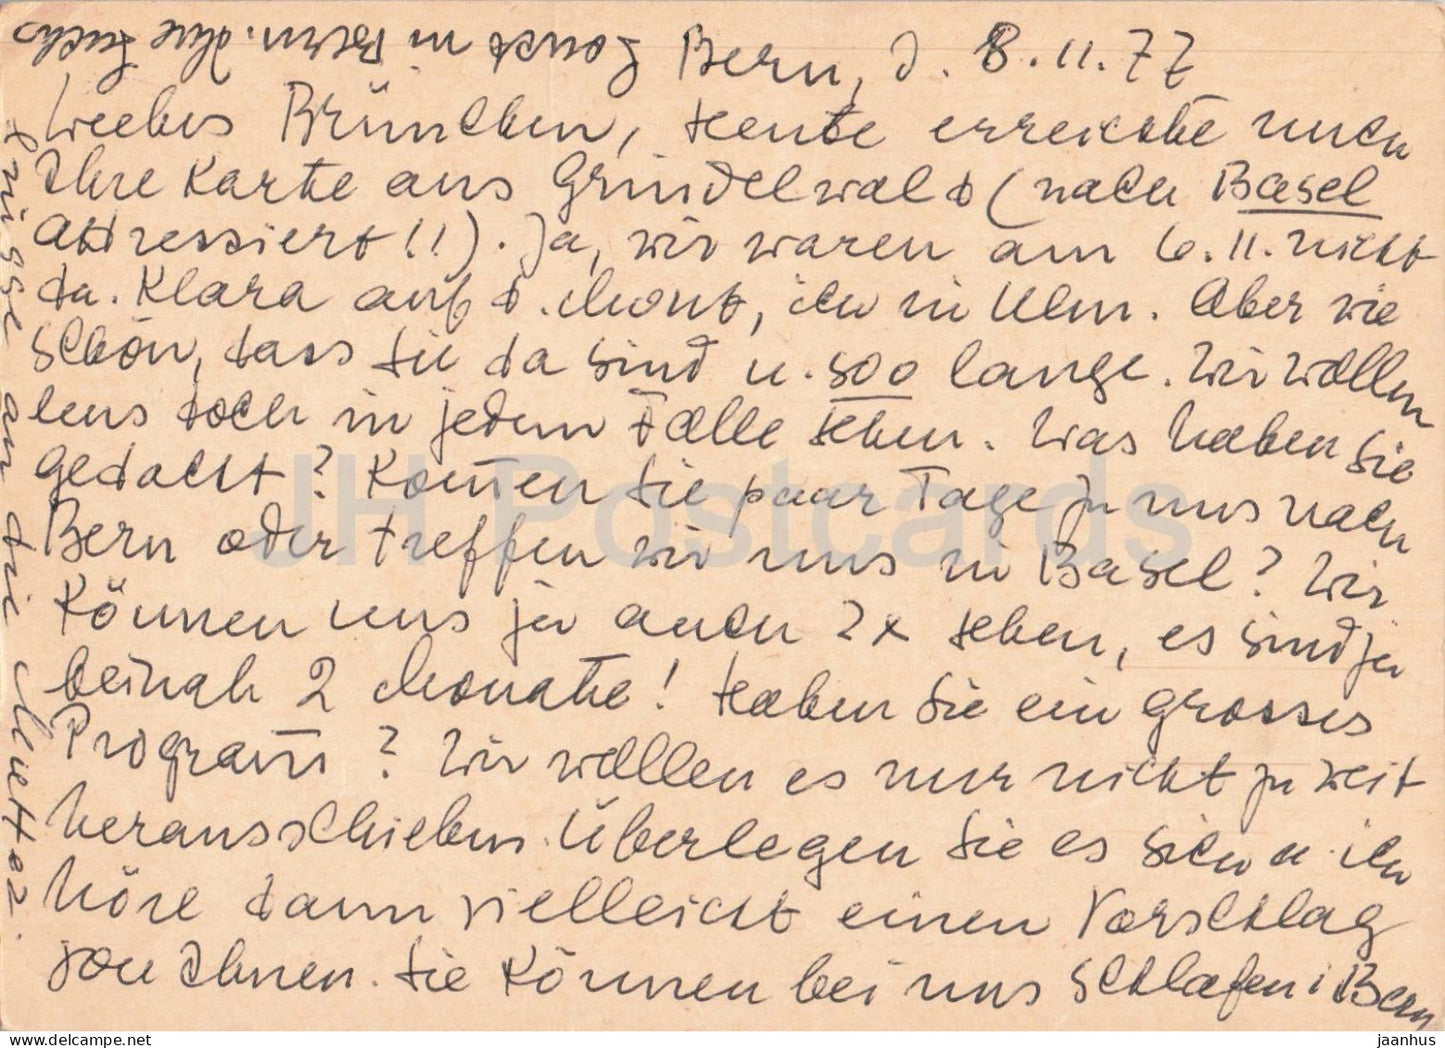 Bern, d. 8.11.77
Liebes Brünchen, heute erreichte mich
Ihre Karte aus Grindelwald (nach Basel
adressiert!!). Ja, wir waren am 6.11. nicht
da. Klara auf d. Mont, ich in Ulm. Aber wie
schön, dass Sie da sind u. soo lange. Wir wollen
uns doch in jedem Falle sehen. Was haben Sie
gedacht? Kom̄en Sie paar Tage zu uns nach
Bern oder treffen wir uns in Basel? Wir
können uns ja auch 2x sehen, es sind ja
beinah 2 Monate! Haben Sie ein grosses
Program̄? Wir wollen es nur nicht zu weit
herausschieben. Überlegen Sie es sich u. ich
höre dann vielleicht einen Vorschlag
von Ihnen. Sie können bei uns schlafen i Bern
sonst in Pension. Ihre Fuchs
Grüsse an die Mutter.
JH Postcards
delcampe.net
jaanhus